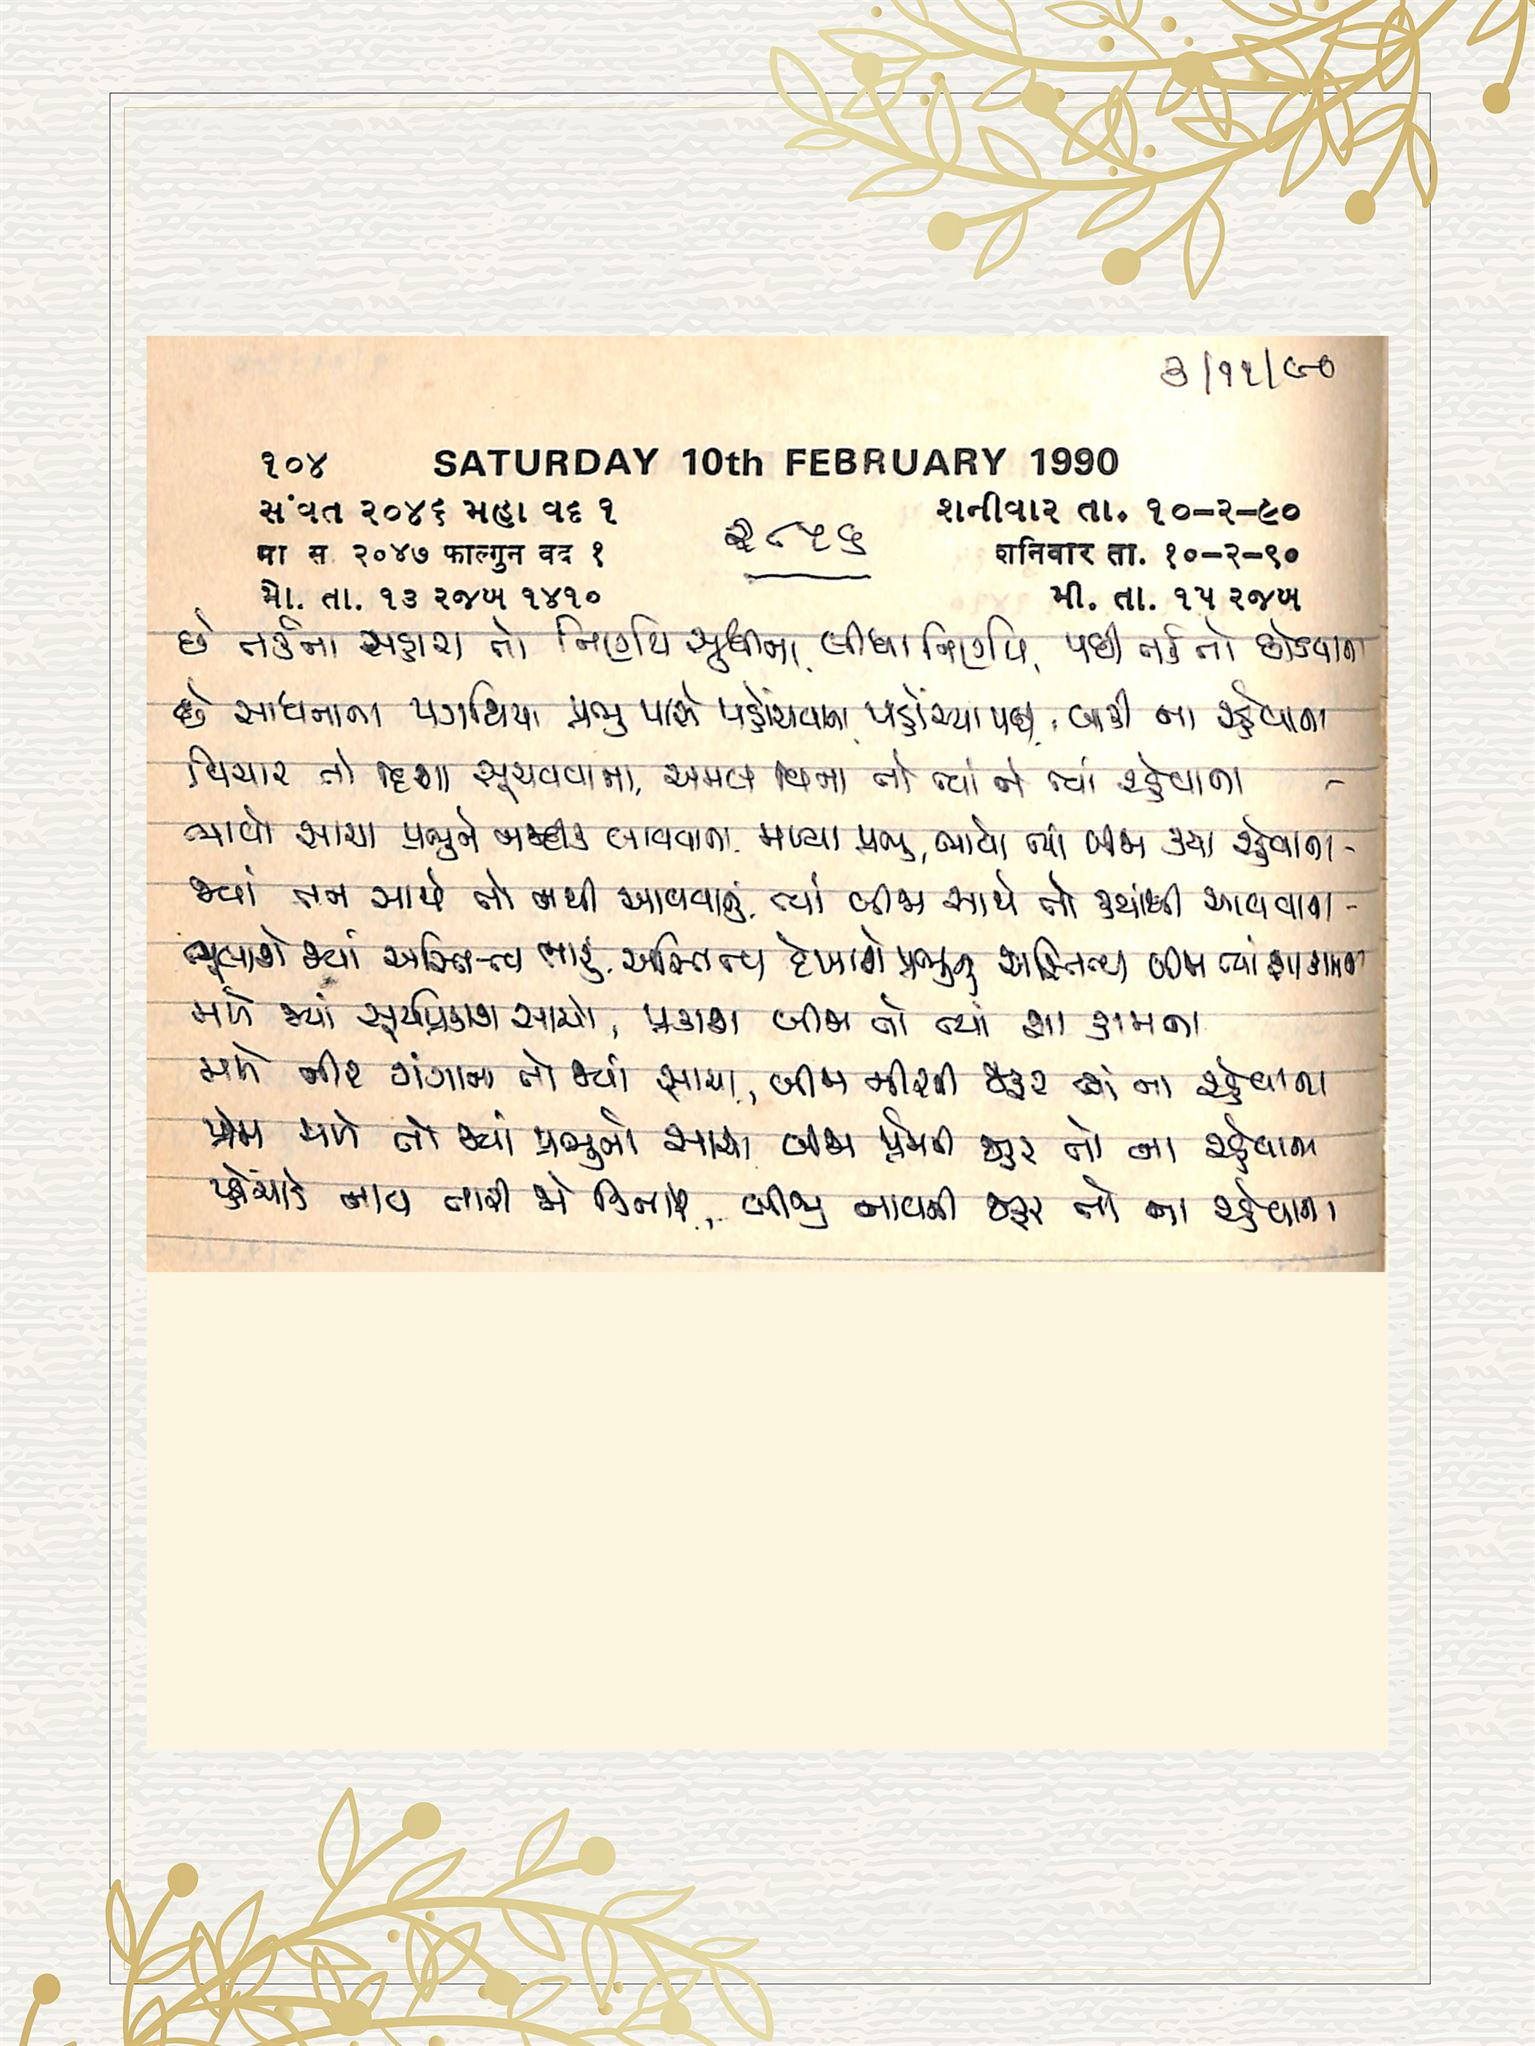 ૩/૧૧/૯૦
૧૦૪ SATURDAY 10th FEBRUARY 1990
સંવત ૨૦૪૬ મહા વદ ૧ શનીવાર તા. ૧૦-૨-૯૦
૨૮૫૬
मा स. २०४७ फाल्गुन वद १ शनिवार ता. १०-२-९०
મો. તા. ૧૩ રજબ ૧૪૧૦ મી. તા. ૧૫ રજબ
છે તર્કના સહારા તો નિર્ણય સુધીના, લીધા નિર્ણય, પછી તર્ક તો છોડવાના
છે સાધનાના પગથિયા પ્રભુ પાસે પહોંચવાના, પહોંચ્યા પછી, બાકી ના રહેવાના
વિચાર તો દિશા સૂચવવાના, અમલ વિના તો ત્યાં ને ત્યાં રહેવાના
ભાવો સાચા પ્રભુને નજદીક લાવવાના, મળ્યા પ્રભુ, ભાવો ત્યાં બીજા ક્યાં રહેવાના -
જ્યાં તન સાથે તો નથી આવવાનું, ત્યાં બીજા સાથે તો ક્યાંથી આવવાના -
ભૂલાશે જ્યાં અસ્તિત્વ તારું, અસ્તિત્વ દેખાશે પ્રભુનું અસ્તિત્વ બીજા ત્યાં શા કામના
મળે જ્યાં સૂર્યપ્રકાશ સાચો, પ્રકાશ બીજા તો ત્યાં શા કામના
મળે નીર ગંગાના તો જ્યાં સાચા, બીજા નીરની જરૂર ત્યાં ના રહેવાના
પ્રેમ મળે તો જ્યાં પ્રભુનો સાચો બીજા પ્રેમની જરૂર તો ના રહેવાના
પહોંચાડે નાવ તારી જે કિનારે, બીજી નાવની જરૂર તો ના રહેવાના